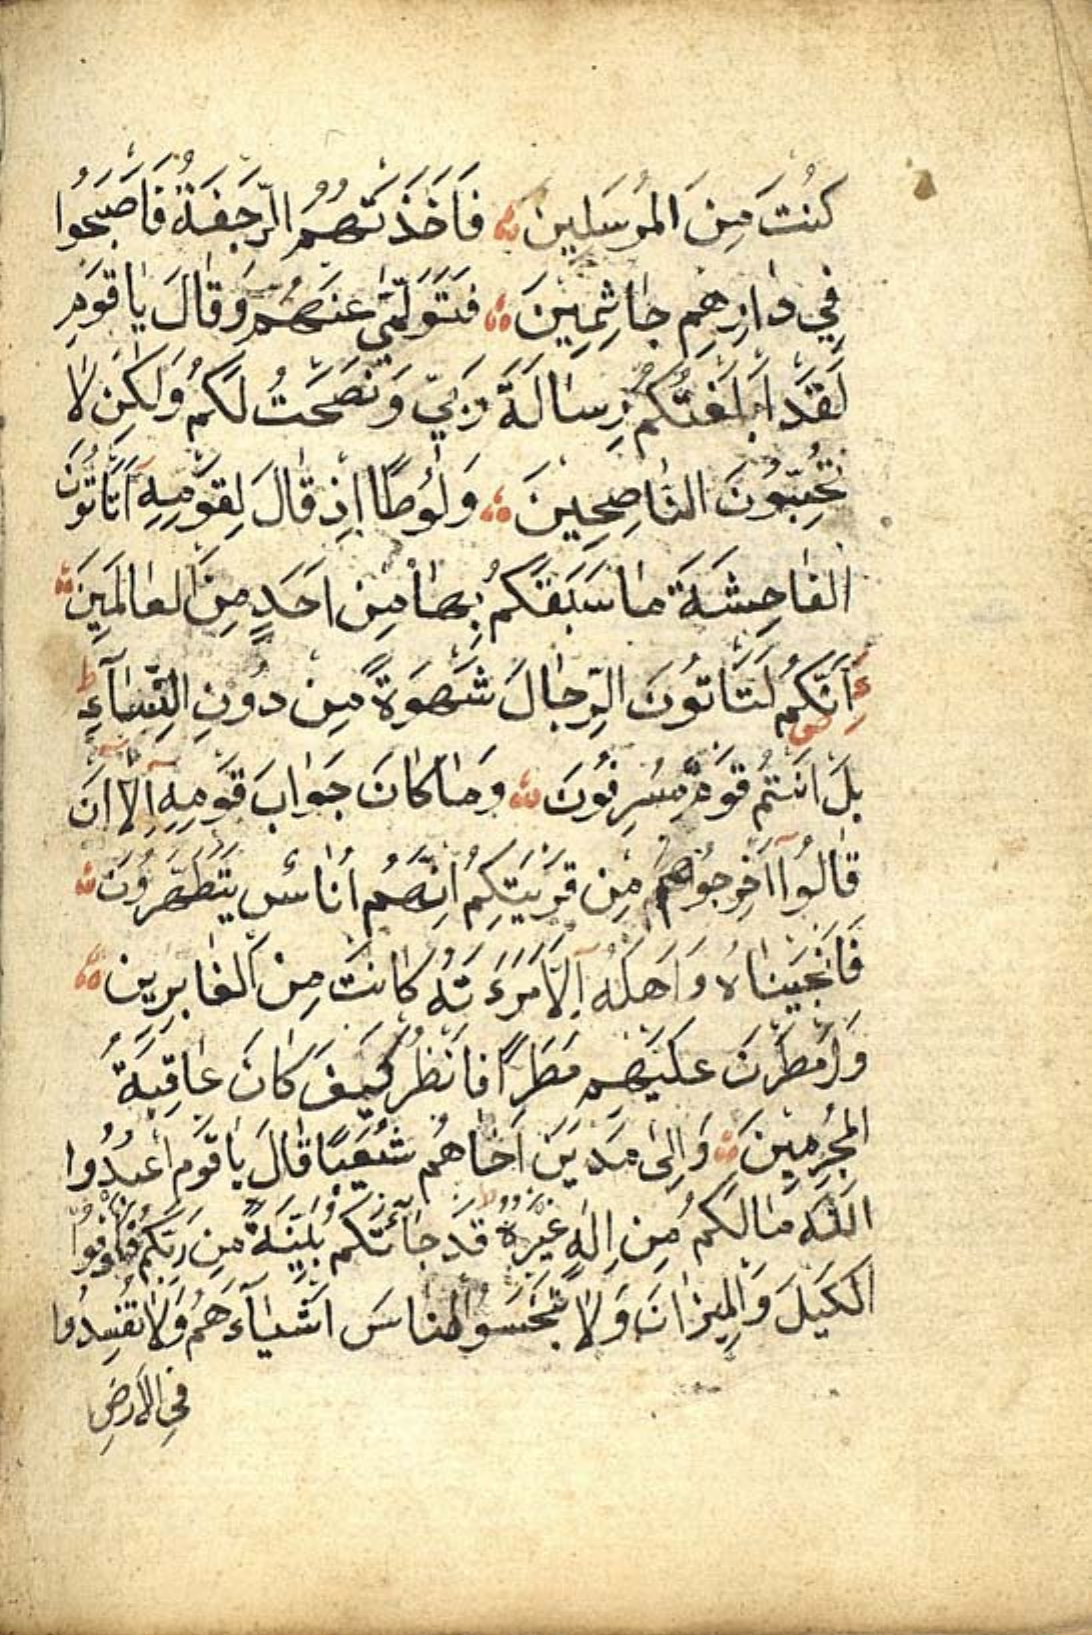 كُنْتَ مِنَ الْمُرْسَلِينَ فَاَخَذَتْهُمُ الرَّجْفَةُ فَاَصْبَحُوا
فِي دَارِهِمْ جَاثِمِينَ فَتَوَلّٰى عَنْهُمْ وَقَالَ يَا قَوْمِ
لَقَدْ اَبْلَغْتُكُمْ رِسَالَةَ رَبِّي وَنَصَحْتُ لَكُمْ وَلٰكِنْ لَا
تُحِبُّونَ النَّاصِحِينَ وَلُوطًا اِذْ قَالَ لِقَوْمِهِ اَتَاْتُونَ
الْفَاحِشَةَ مَا سَبَقَكُمْ بِهَا مِنْ اَحَدٍ مِنَ الْعَالَمِينَ
ءَاِنَّكُمْ لَتَاْتُونَ الرِّجَالَ شَهْوَةً مِنْ دُونِ النِّسَآءِ ط
بَلْ اَنْتُمْ قَوْمٌ مُسْرِفُونَ وَمَا كَانَ جَوَابَ قَوْمِهِ اِلَّا اَنْ
قَالُوا اَخْرِجُوهُمْ مِنْ قَرْيَتِكُمْ اِنَّهُمْ اُنَاسٌ يَتَطَهَّرُونَ
فَاَنْجَيْنَاهُ وَاَهْلَهُ اِلَّا امْرَءَتَهُ كَانَتْ مِنَ الْغَابِرِينَ
وَاَمْطَرْنَ عَلَيْهِمْ مَطَرًا فَانْظُرْ كَيْفَ كَانَ عَاقِبَةُ
الْمُجْرِمِينَ وَاِلٰى مَدْيَنَ اَخَاهُمْ شُعَيْبًا قَالَ يَا قَوْمِ اعْبُدُوا
اللّٰهَ مَا لَكُمْ مِنْ اِلٰهٍ غَيْرُهُ قَدْ جَآءَتْكُمْ بَيِّنَةٌ مِنْ رَبِّكُمْ فَاَوْفُوا
الْكَيْلَ وَالْمِيزَانَ وَلَا تَبْخَسُوا النَّاسَ اَشْيَآءَهُمْ وَلَا تُفْسِدُوا
فِي الْاَرْضِ